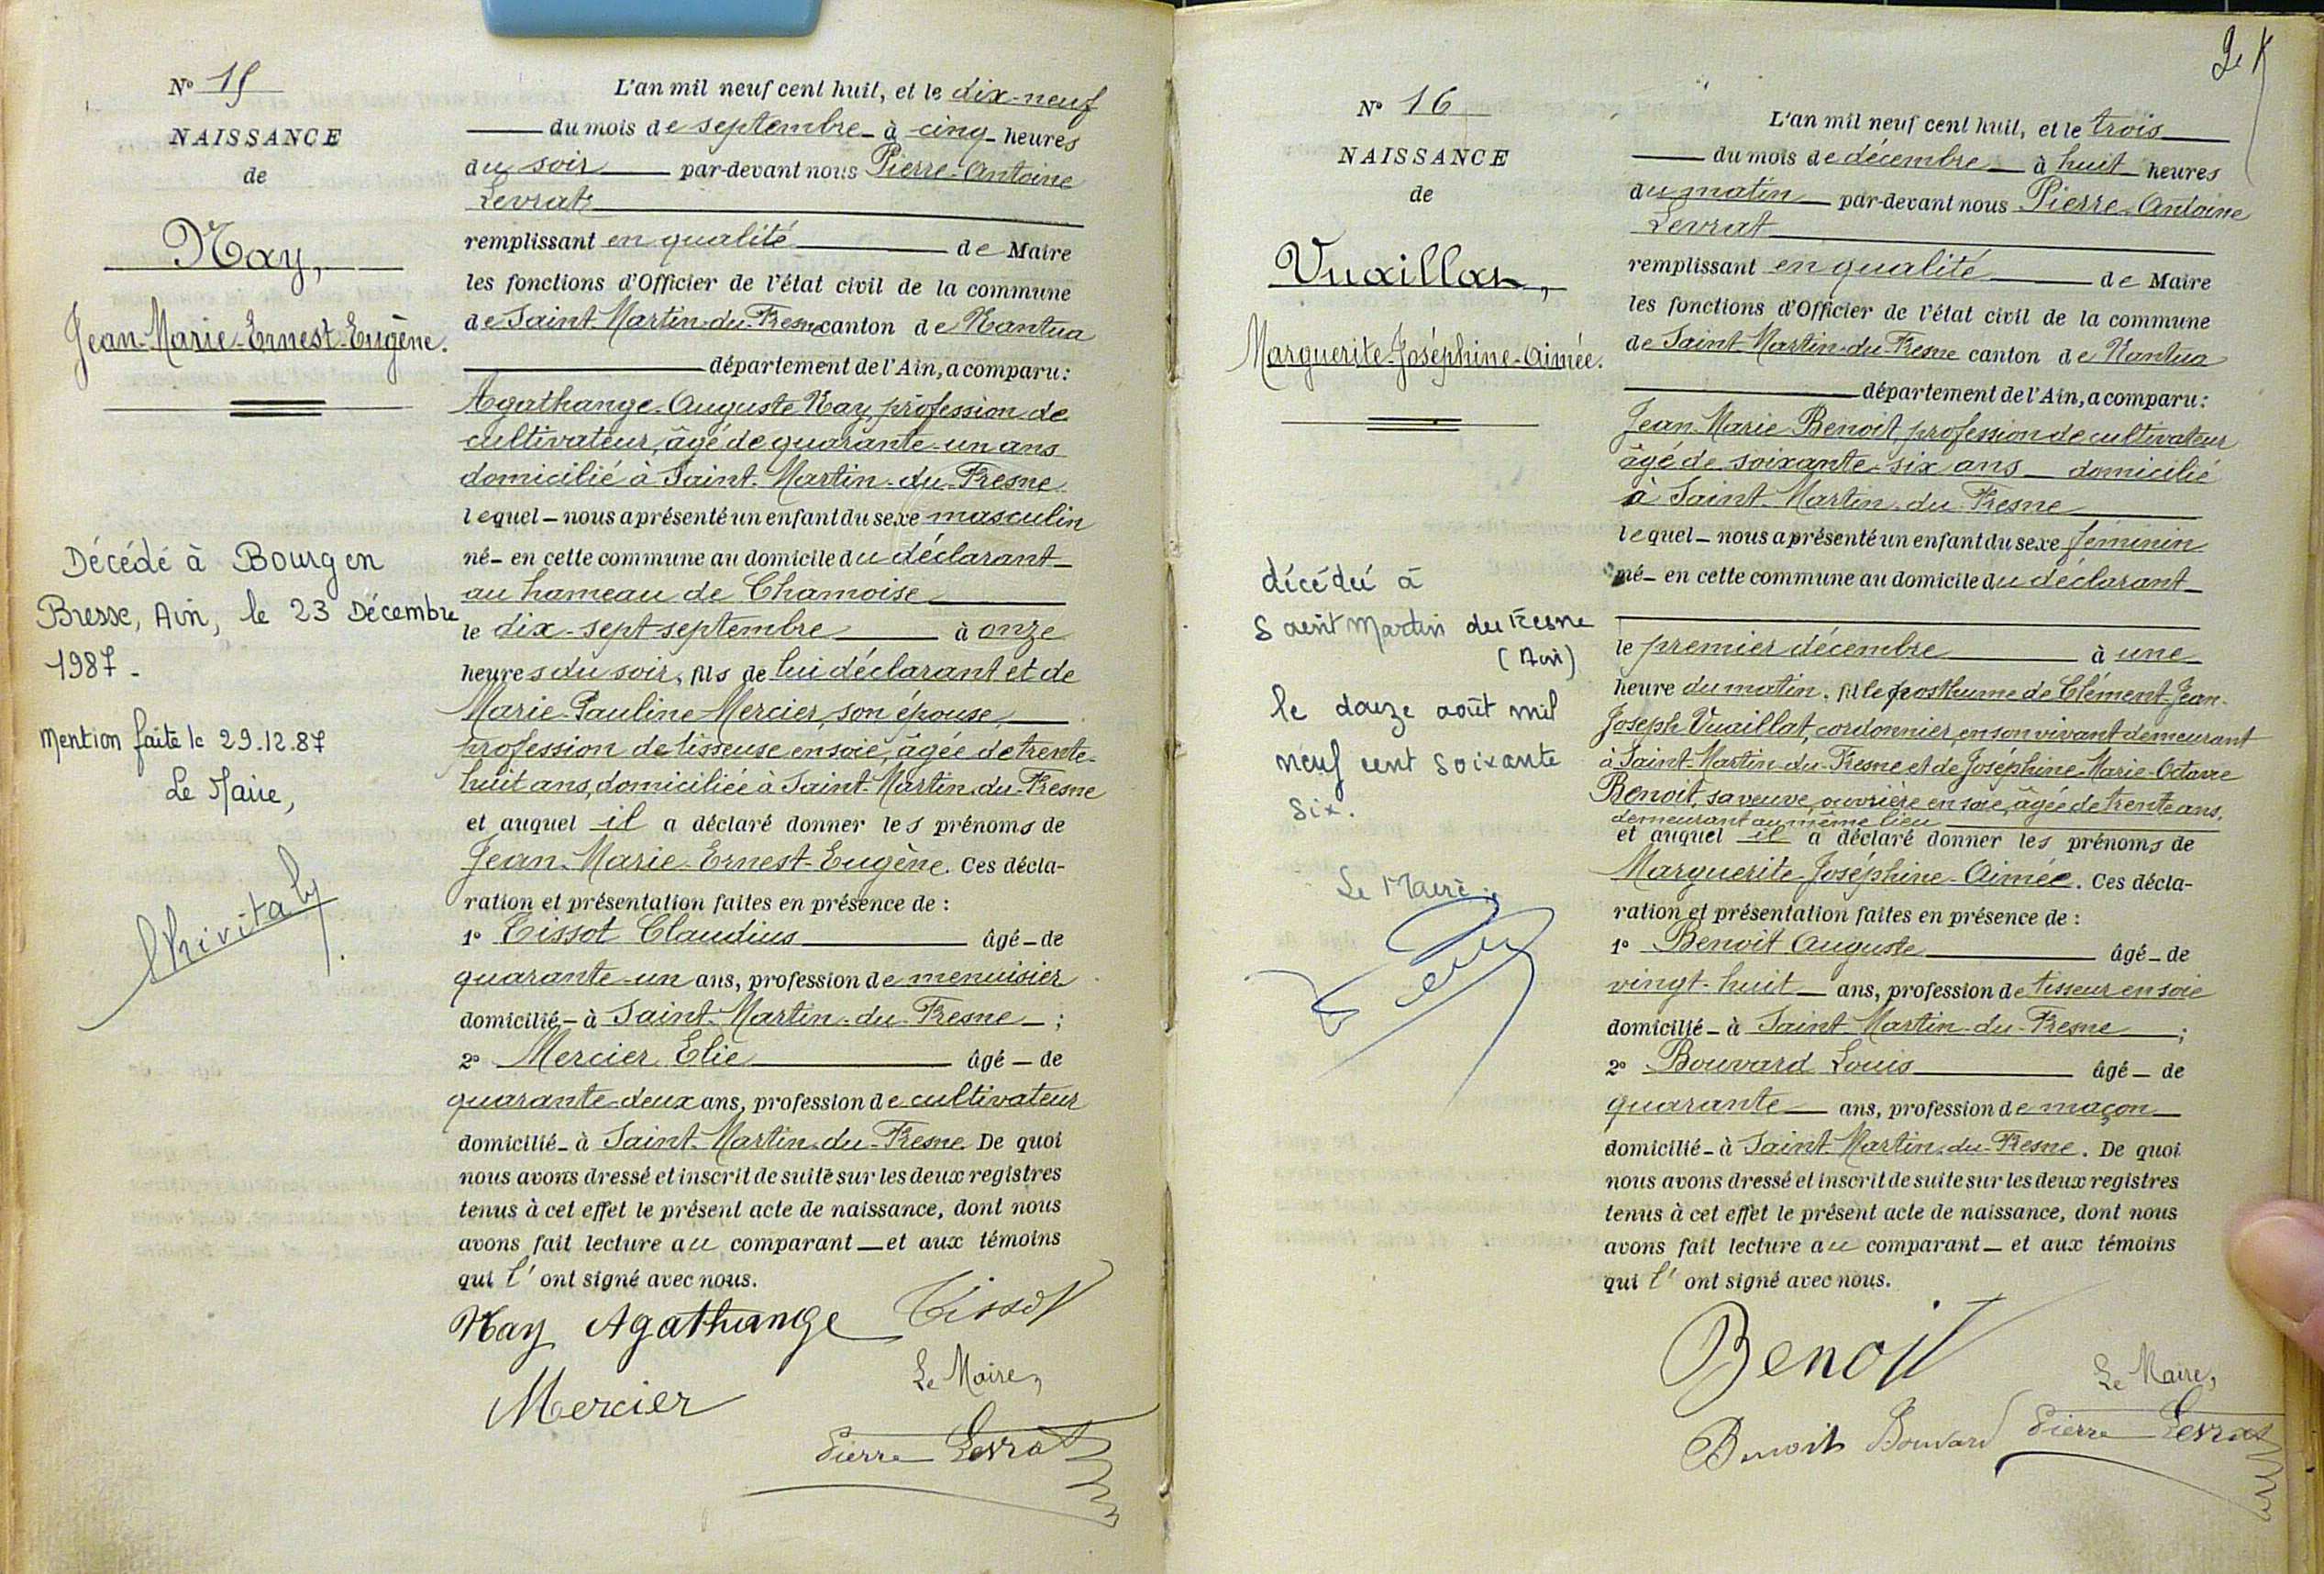 N° 15
NAISSANCE
de
Nay,
Jean-Marie-Ernest-Eugène.
Décédé à Bourg en
Bresse, Ain, le 23 Décembre
1987 -
Mention faite le 29.12.87
Le Maire,
L'an mil neuf cent huit, et le dix-neuf
du mois de septembre - à cinq - heures
du soir par-devant nous Pierre-Antoine
Levrat
remplissant en qualité de Maire
les fonctions d'Officier de l'état civil de la commune
de Saint-Martin-du-Fresne canton de Nantua
département de l'Ain, a comparu :
Agathange-Auguste Nay, profession de
cultivateur, âgé de quarante-un ans
domicilié à Saint-Martin-du-Fresne
lequel - nous a présenté un enfant du sexe masculin
né - en cette commune au domicile du déclarant
au hameau de Chamoise
le dix-sept septembre à onze
heures du soir, fils de lui déclarant et de
Marie-Pauline Mercier, son épouse
profession de tisseuse en soie, âgée de trente-
huit ans, domiciliée à Saint-Martin-du-Fresne
et auquel il a déclaré donner les prénoms de
Jean-Marie-Ernest-Eugène. Ces décla-
ration et présentation faites en présence de :
1° Tissot Claudius âgé - de
quarante-un ans, profession de menuisier
domicilié - à Saint-Martin-du-Fresne - ;
2° Mercier Elie âgé - de
quarante-deux ans, profession de cultivateur
domicilié - à Saint-Martin-du-Fresne. De quoi
nous avons dressé et inscrit de suite sur les deux registres
tenus à cet effet le présent acte de naissance, dont nous
avons fait lecture au comparant - et aux témoins
qui l' ont signé avec nous.
Nay Agathange Tissot
Mercier
Le Maire,
Pierre Levrat
N° 16
NAISSANCE
de
Vuaillat,
Marguerite-Joséphine-Aimée.
décédée à
Saint Martin du Fresne
(Ain)
le douze août mil
neuf cent soixante
six.
Le Maire
L'an mil neuf cent huit, et le trois
du mois de décembre à huit heures
du matin par-devant nous Pierre-Antoine
Levrat
remplissant en qualité de Maire
les fonctions d'Officier de l'état civil de la commune
de Saint-Martin-du-Fresne canton de Nantua
département de l'Ain, a comparu :
Jean-Marie Benoit, profession de cultivateur
âgé de soixante-six ans - domicilié
à Saint-Martin-du-Fresne
lequel - nous a présenté un enfant du sexe féminin
né - en cette commune au domicile du déclarant
le premier décembre à une
heure du matin. fille posthume de Clément-Jean-
Joseph Vuaillat, cordonnier, en son vivant demeurant
à Saint-Martin-du-Fresne et de Joséphine-Marie-Octavie
Benoit, sa veuve, ouvrière en soie, âgée de trente ans,
demeurant au même lieu
et auquel il a déclaré donner les prénoms de
Marguerite-Joséphine-Aimée. Ces décla-
ration et présentation faites en présence de :
1° Benoit Auguste âgé - de
vingt-huit - ans, profession de tisseur en soie
domicilié - à Saint-Martin-du-Fresne ;
2° Bouvard Louis âgé - de
quarante ans, profession de maçon
domicilié - à Saint-Martin-du-Fresne. De quoi
nous avons dressé et inscrit de suite sur les deux registres
tenus à cet effet le présent acte de naissance, dont nous
avons fait lecture au comparant - et aux témoins
qui l' ont signé avec nous.
Benoit
Le Maire,
Benoit Bouvard Pierre Levrat